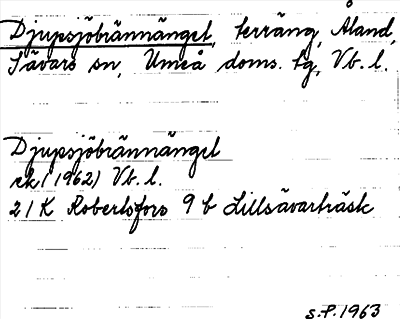 Djupsjöbrännänget, terräng, Åland,
Sävars sn, Umeå doms. tg, Vb. l.
Djupsjöbrännänget
ek (1962) Vb. l.
21 K Robertsfors 9 b Lillsävarträsk
S.P. 1963